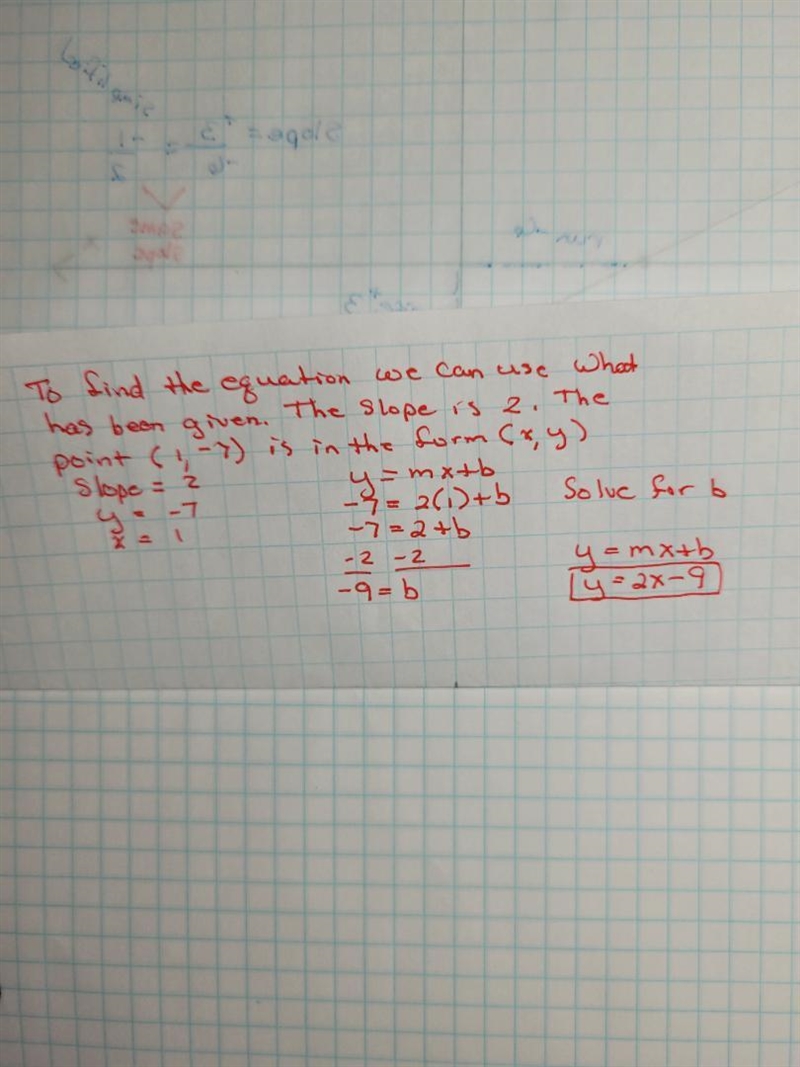 To find the equation we can use what
has been given. The slope is 2. The
point (1, -7) is in the form (x, y)
Slope = 2
y = -7
x = 1
y = mx+b
-7 = 2(1)+b
-7 = 2+b
-2 -2
-9 = b
Solve for b
y = mx+b
y = 2x-9
Slope = +3/-6 = -1/2
same
slope
x
run -6